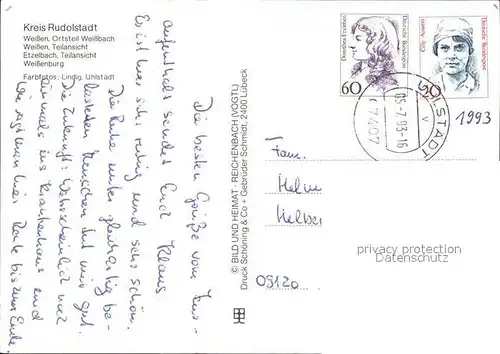 Kreis Rudolstadt
Weißen, Ortsteil Weißbach
Weißen, Teilansicht
Etzelbach, Teilansicht
Weißenburg
Farbfotos: Lindig, Uhlstädt
Dorothea Erxleben
Deutsche Bundespost
60
Cilly Aussem
Deutsche Bundespost
20
UHLSTÄDT
05.-7.93-16
V
7407
1993
© BILD UND HEIMAT · REICHENBACH (VOGTL)
Druck Schöning & Co + Gebrüder Schmidt, 2400 Lübeck
Die besten Grüße vom
aufenthalt sendet Euch Klaus
Es ist hier sehr ruhig und sehr schön.
Die Ruhe unter gleichaltrig be-
lasteten Menschen tut mir gut.
Die Zukunft: Wahrscheinlich nur
ins Krankenhaus und
bis zum Ende
Fam.
Helm
09120
privacy protection
Datenschutz